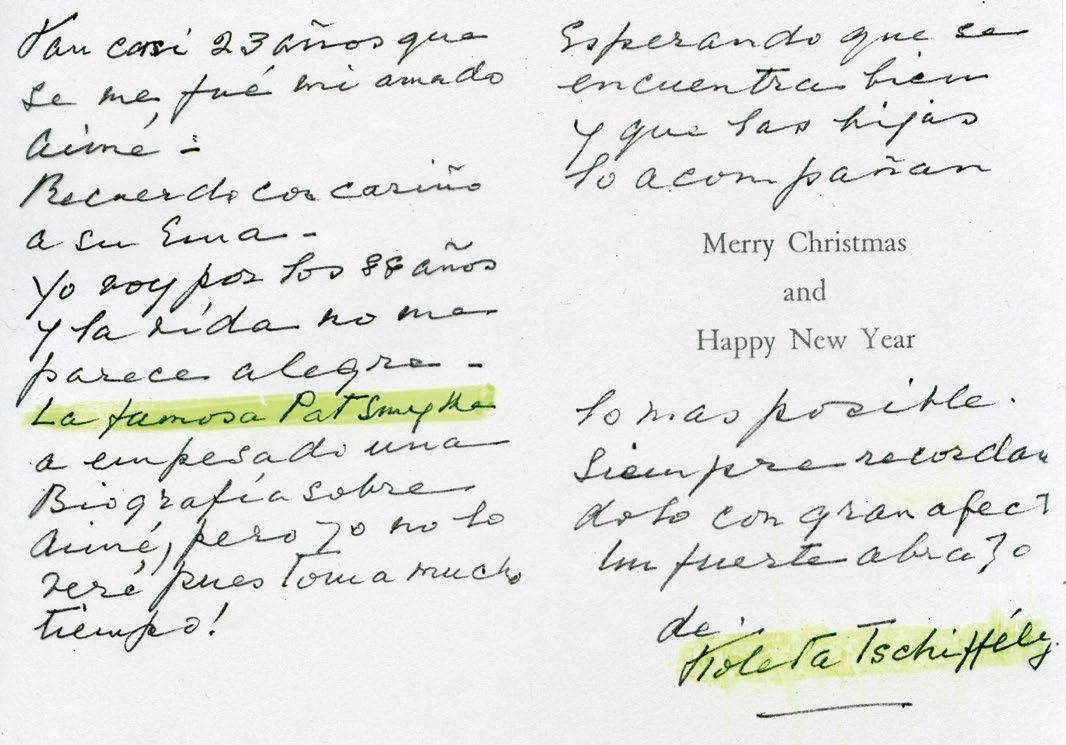 Van casi 23 años que
se me, fué mi amado
Aimé -
Recuerdo con cariño
a su Ema -
Yo voy por los 88 años
y la vida no me
parece alegre -
La famosa Pat Smythe
a empesado una
Biografía sobre
Aimé, pero yo no lo
veré, pues toma mucho
tiempo!
Esperando que se
encuentra bien
y que las hijas
lo acompañan
Merry Christmas
and
Happy New Year
lo mas posible.
Siempre recordan
dolo con gran afect
Un fuerte abrazo
de.
Violeta Tschiffély